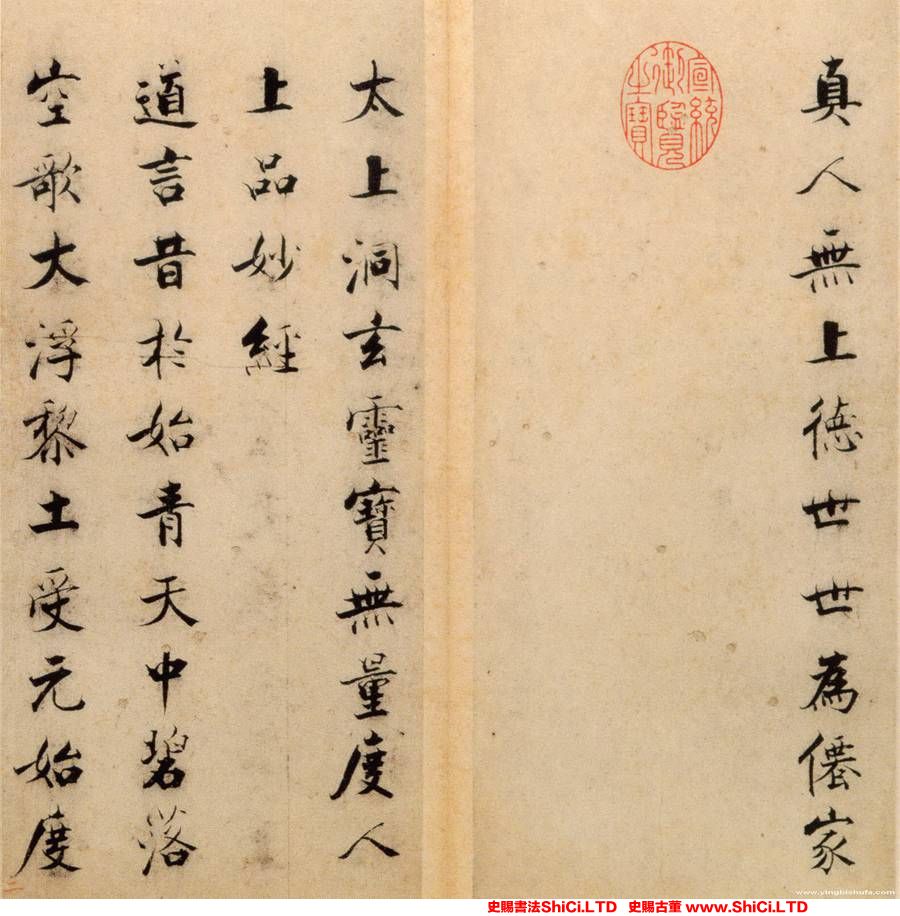 真人無上德世世為僊家
宣統御覽之寶
太上洞玄靈寶無量度人
上品妙經
道言昔於始青天中碧落
空歌大浮黎土受元始度
二
www.yingbishufa.com
史賜書法ShiCi.LTD 史賜古董 www.ShiCi.LTD